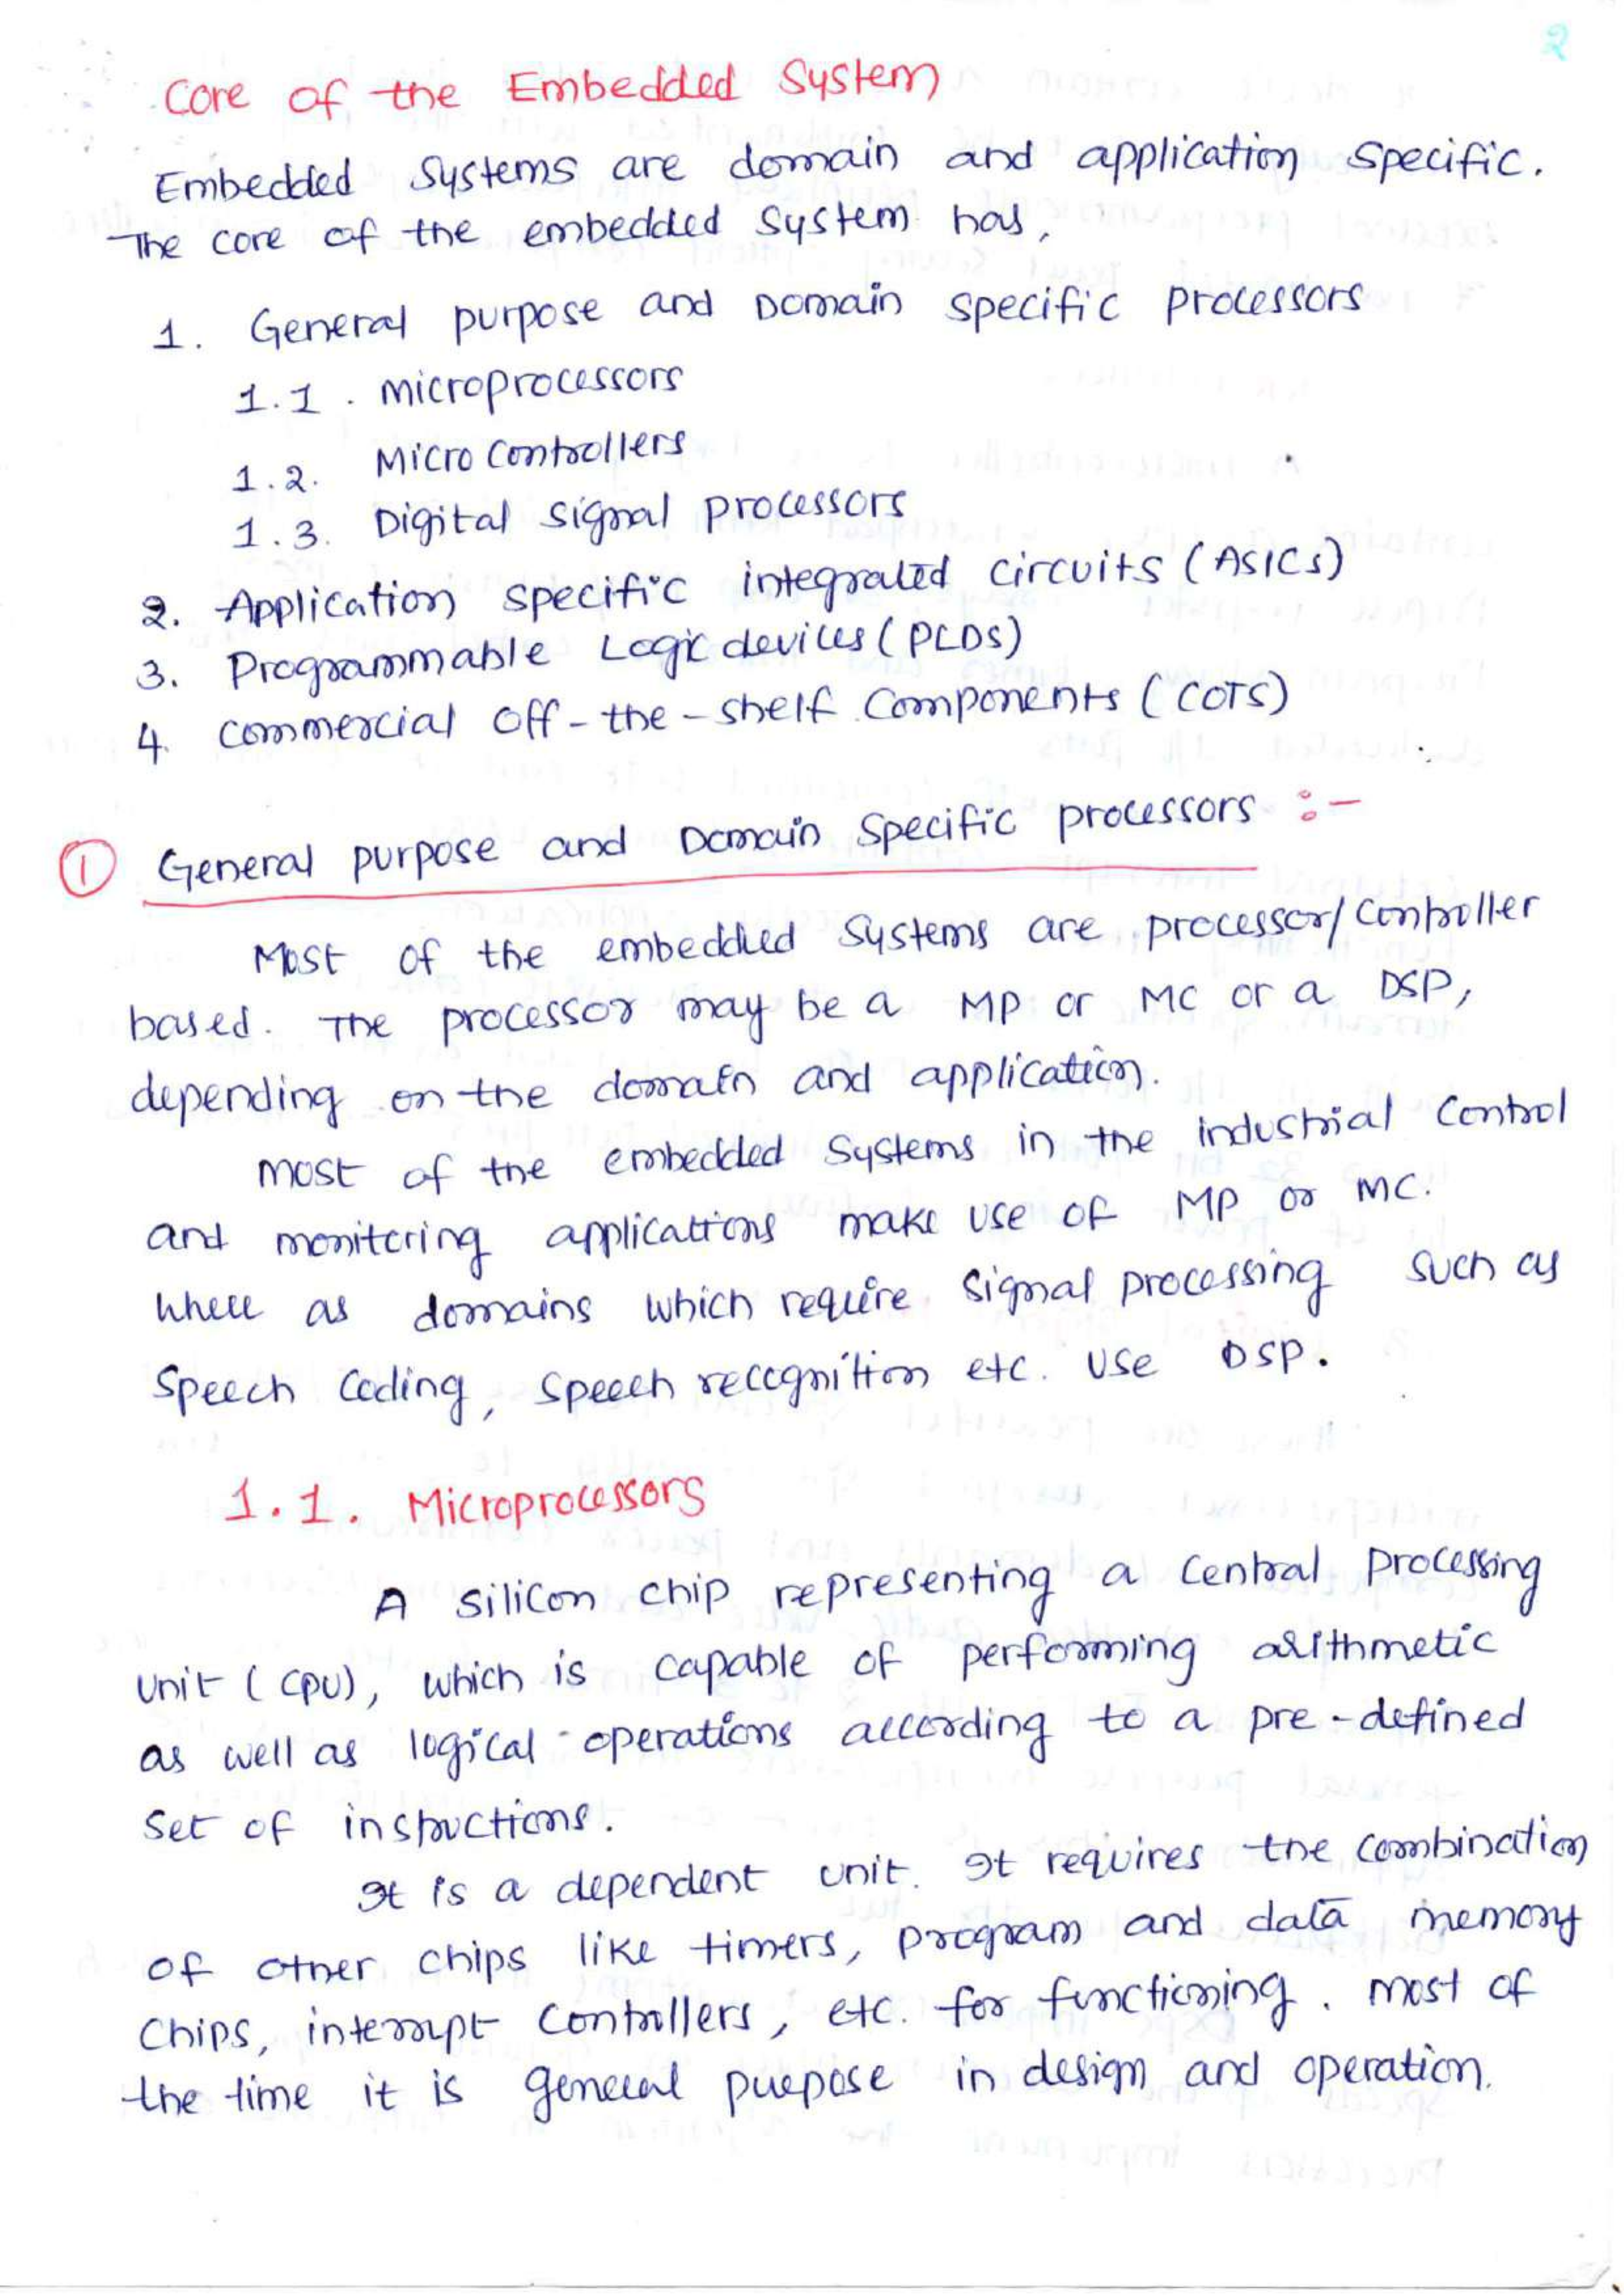 2
Core of the Embedded System
Embedded Systems are domain and application specific.
The core of the embedded system has,
1. General purpose and Domain specific processors
1.1. microprocessors
1.2. Micro controllers
1.3. Digital signal processors
2. Application specific integrated circuits (ASICs)
3. Programmable Logic devices (PLDs)
4. Commercial off-the-shelf Components (COTS)
① General purpose and Domain specific processors :-
Most of the embedded systems are processor/controller
based. The processor may be a MP or MC or a DSP,
depending on the domain and application.
most of the embedded systems in the industrial control
and monitoring applications make use of MP or MC.
where as domains which require signal processing such as
Speech Coding, speech recognition etc. use DSP.
1.1. Microprocessors
A silicon chip representing a central processing
unit (CPU), which is capable of performing arithmetic
as well as logical operations according to a pre-defined
set of instructions.
It is a dependent unit. It requires the combination
of other chips like timers, program and data memory
chips, interrupt controllers, etc. for functioning. most of
the time it is general purpose in design and operation.